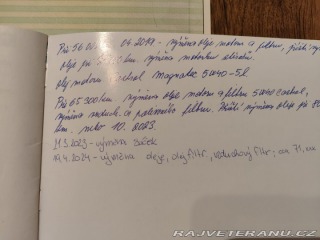 Při 56 04.2019 - výměna oleje motoru a filtru, příští vým
oleje při km výměna motoru
olej motoru castrol Magnatec 5W40 - 5l
Při 65 300 km výměna oleje motoru a filtru 5W40 castrol,
výměna vzduch. a palivového filtru. Příští výměna oleje při 8
km. nebo 10. 2023.
2023 - výměna
19.4.2024 - výměna oleje, olej filtr, vzduchový filtr, 71,
RAJVETERANU.CZ